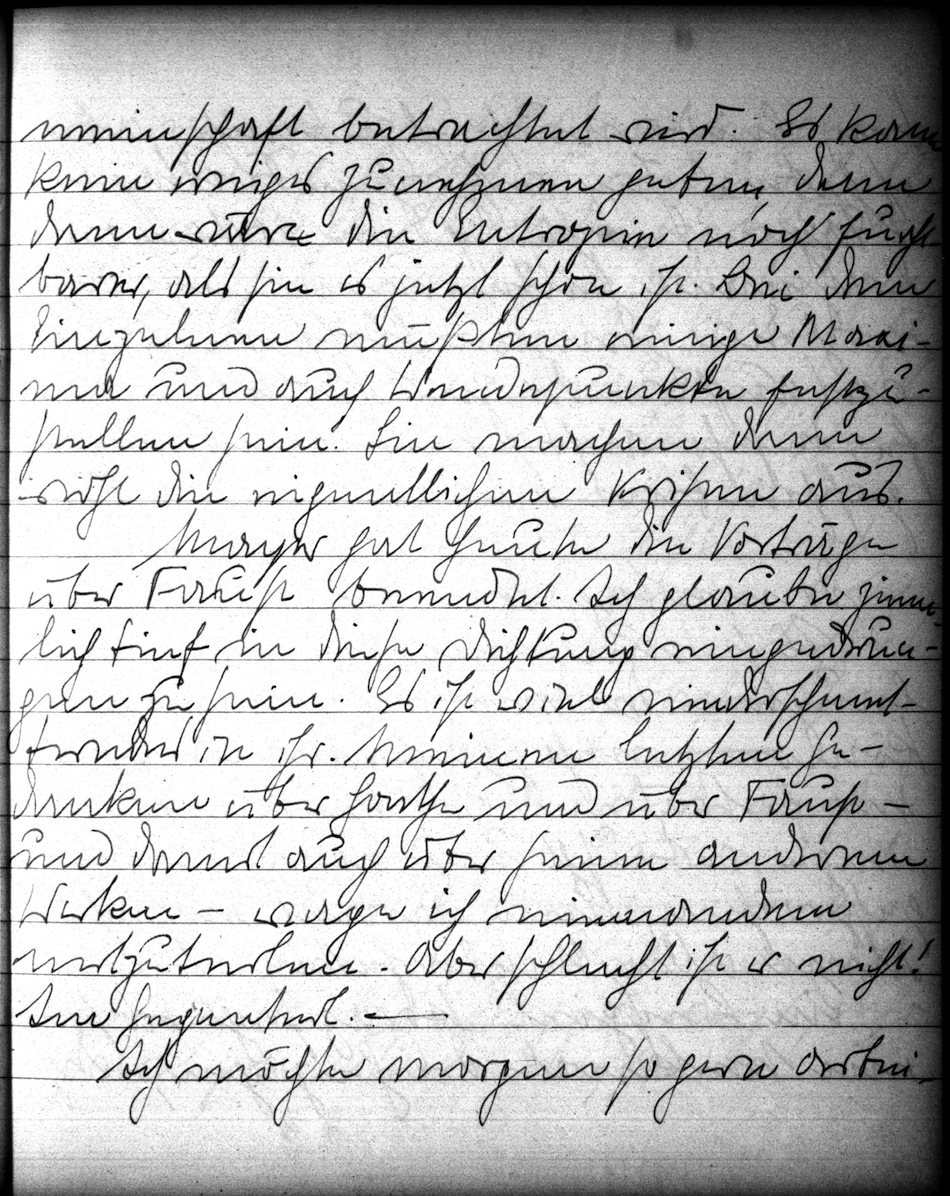 meinschaft betrachtet wird. Es kann
kein ewiges Zunehmen geben, denn
dann wäre die Entropie noch furcht
barer, als sie es jetzt schon ist. Bei dem
Einzelnen müßten einige Maxi-
ma und auch Wendepunkte festzu-
stellen sein. Sie machen dann
wohl die eigentlichen Krisen aus.
Mayer hat heute die Vorträge
über Faust beendet. Ich glaube ziem-
lich tief in diese Dichtung eingedrun-
gen zu sein. Es ist viel
in ihr. Meinen letzten Ge-
danken über Goethe und über Faust –
und damit auch über seinen anderen
Werken – wage ich niemandem
mitzuteilen. Aber schlecht ist er nicht!
Im Gegenteil. —
Ich möchte morgen so gern arbei-